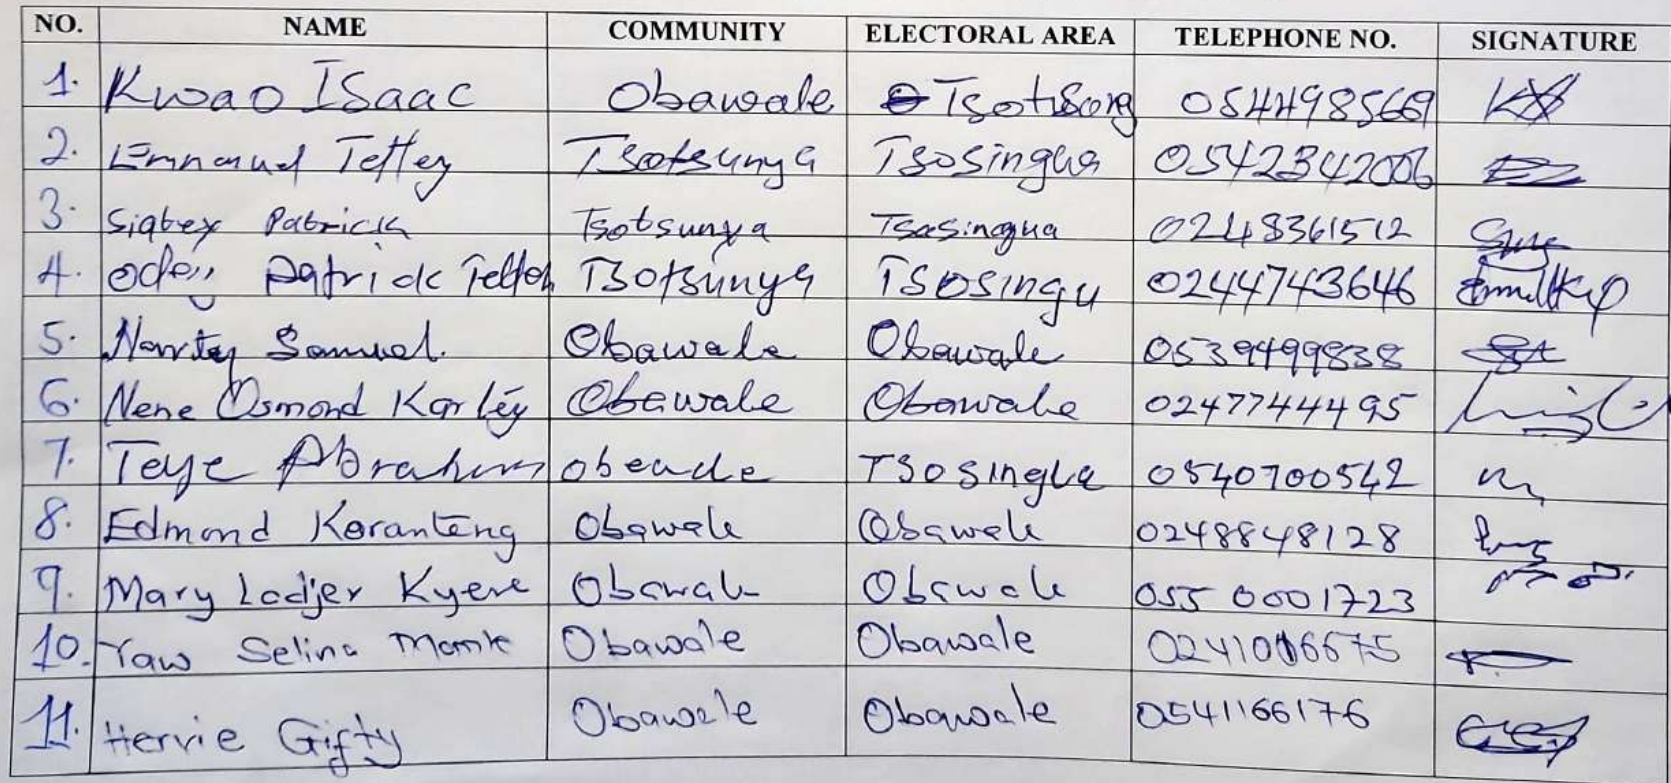 NO. NAME COMMUNITY ELECTORAL AREA TELEPHONE NO. SIGNATURE
1. Kwao Isaac Obawale Tsotisong 0544985669
2. Emmanuel Tettey Tsotsunya Tsosingua 0542342006
3. Siabey Patrick Tsotsunya Tsosingua 0248361512
4. Odey Patrick Tetteh Tsotsunya Tsosingu 0244743646
5. Nartey Samuel. Obawale Obawale 0539499838
6. Nene Osmond Karley Obawale Obawale 0247744495
7. Teye Abraham obeade Tsosingla 0540700542
8. Edmond Koranteng Obawale Obawale 0248848128
9. Mary Ladjer Kyere Obawale Obawale 055 0001723
10. Yaw Selina Mamle Obawale Obawale 0241006675
11. Hervie Gifty Obawale Obawale 0541166176